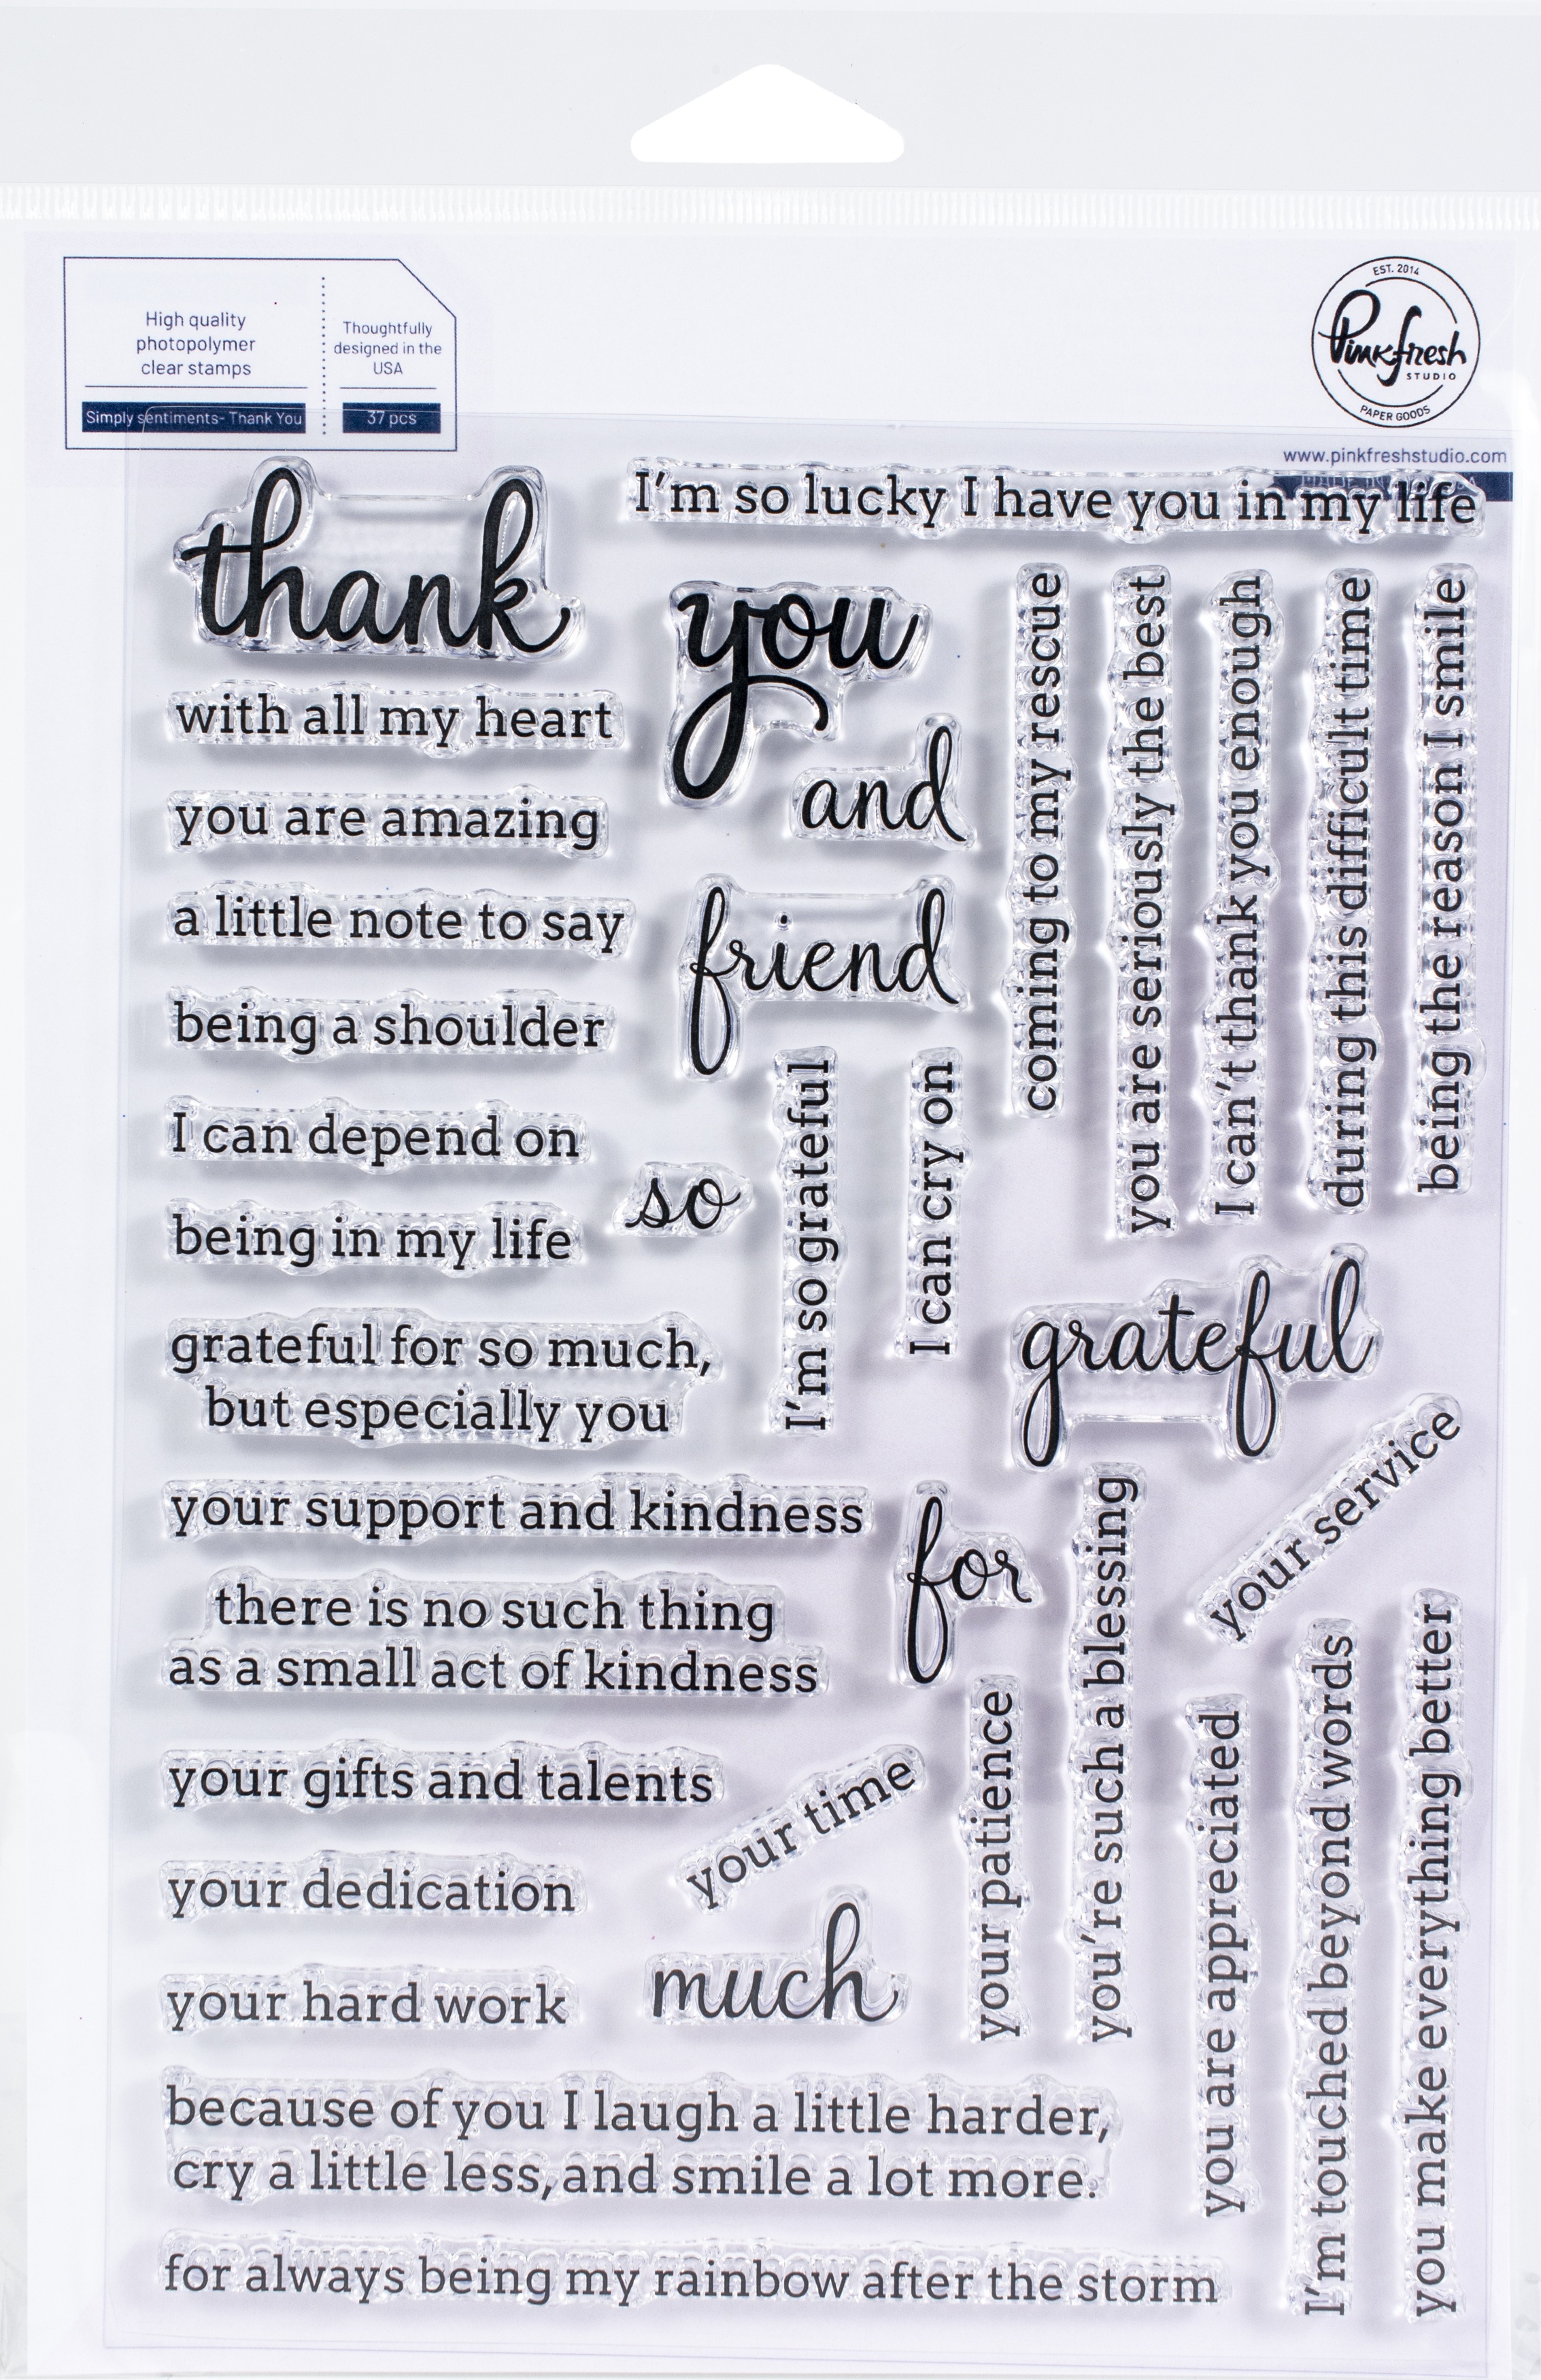 High quality
photopolymer
clear stamps
Simply sentiments- Thank You
Thoughtfully
designed in the
USA
37 pcs
EST. 2014
Pinkfresh
STUDIO
PAPER GOODS
www.pinkfreshstudio.com
thank
I'm so lucky I have you in my life
you
with all my heart
and
you are amazing
a little note to say
friend
being a shoulder
I can depend on
so
being in my life
I'm so grateful
I can cry on
coming to my rescue
you are seriously the best
I can't thank you enough
during this difficult time
being the reason I smile
grateful
grateful for so much,
but especially you
your service
your support and kindness
for
there is no such thing
as a small act of kindness
your gifts and talents
your time
your dedication
much
your hard work
your patience
you're such a blessing
you are appreciated
I'm touched beyond words
you make everything better
because of you I laugh a little harder,
cry a little less, and smile a lot more.
for always being my rainbow after the storm